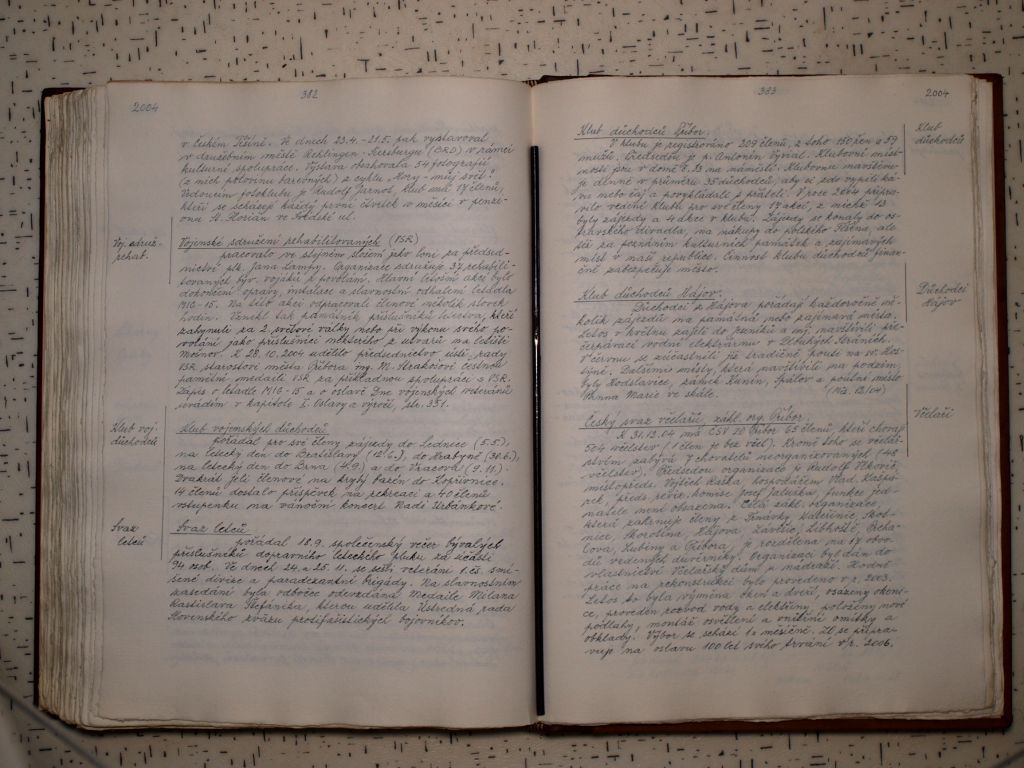 2004
382
v Českém Těšíně. Ve dnech 23.4. - 21.5. pak vystavoval
v družebním městě (BRD) v rámci
kulturní spolupráce. Výstava obsahovala 54 fotografií
(z nich polovinu barevných) z cyklu „Hory - můj svět".
Vedoucím fotoklubu je Rudolf Jarnot, klub má členů,
kteří se scházejí každý první čtvrtek v měsíci v penzi-
onu sv. Florián ve Frýdecké ul.
Voj. sdruž.
rehab.
Vojenské sdružení rehabilitovaných (VSR)
pracovalo ve stejném složení jako loni za předsed-
nictví plk. Jana Lampy. Organizace sdružuje 37 rehabili-
tovaných býv. vojáků z povolání. Hlavní letošní akcí bylo
dokončení opravy, instalace a slavnostní odhalení letadla
MIG-15. Na této akci odpracovali členové několik stovek
hodin. Vznikl tak památník příslušníků letectva, kteří
zahynuli za 2. světové války nebo při výkonu svého po-
volání jako příslušníci některého z útvarů na letišti
Mošnov. K 28. 10. 2004 udělilo předsednictvo ústř. rady
VSR starostovi města Příbora ing. M. Strakošovi čestnou
pamětní medaili VSR za příkladnou spolupráci s VSR.
Zápis o letadle MIG-15 a o oslavě Dne vojenských veteránů
uvádím v kapitole I. Oslavy a výročí, str. 331.
Klub voj.
důchodců
Klub vojenských důchodců
pořádal pro své členy zájezdy do Lednice (5.5.),
na letecký den do Bratislavy (12.6.), do Hrabyně (30.6.),
na letecký den do Brna (4.9.) a do Vracova (9.11.).
Dvakrát jeli členové na krytý bazén do Kopřivnice.
14 členů dostalo příspěvek na rekreaci a 40 členů
vstupenku na vánoční koncert Nadi Urbánkové.
Svaz
letců
Svaz letců
pořádal 18.9. společenský večer bývalých
příslušníků dopravního leteckého pluku za účasti
94 osob. Ve dnech 24. a 25. 11. se sešli veteráni 1. čs. smí-
šené divize a paradesantní brigády. Na slavnostním
zasedání byla odbočce odevzdána Medaile Milana
Rastislava Štefánika, kterou udělila Ústredná rada
Slovenského zväzu protifašistických bojovníkov.
383
2004
Klub
důchodců
Klub důchodců Příbor.
V klubu je registrováno 209 členů, z toho 150 žen a 59
mužů. Předsedou je p. Antonín Výval. Klubovní míst-
nosti jsou v domě č. 23 na náměstí. Klubovnu navštěvu-
je denně v průměru 35 důchodců, aby si zde vypili ká-
vu nebo čaj a porozprávěli s přáteli. V roce 2004 připra-
vilo vedení klubu pro své členy 17 akcí, z nichž 13
byly zájezdy a 4 akce v klubu. Zájezdy se konaly do os-
travského divadla, na nákupy do polského Těšína, ale
též za poznáním kulturních památek a zajímavých
míst v naší republice. Činnost klubu důchodců finan-
čně zabezpečuje město.
Důchodci
Hájov
Klub důchodců Hájov.
Důchodci z Hájova pořádají každoročně ně-
kolik zájezdů na památná nebo zajímavá místa.
Letos v květnu zajeli do Jeseníků a mj. navštívili pře-
čerpávací vodní elektrárnu v Dlouhých Stráních.
V červnu se zúčastnili již tradičně pouti na sv. Hos-
týně. Dalšími místy, která navštívili na podzim,
byly Hodslavice, zámek Kunín, Spálov a poutní místo
Panna Marie ve skále. (Mě. 12/04)
Včelaři
Český svaz včelařů, zákl. org. Příbor.
K 31.12.04 má ČSV ZO Příbor 65 členů, kteří chovají
564 včelstev (1 člen je bez včel). Kromě toho se včelař-
stvím zabývá 7 chovatelů neorganizovaných (48
včelstev). Předsedou organizace je Rudolf Vlkovič,
místopředs. Vojtěch Raška, hospodářem Vlad. Kašpá-
rek, předs. reviz. komise Josef Jaluška, funkce jed-
natele není obsazena. Celá zákl. organizace,
která zahrnuje členy z Trnávky, Kateřinic, Skot-
nice, Skorotína, Hájova, Závišic, Libhoště, Prcha-
lova, Lubiny a Příbora, je rozdělena na 17 obvo-
dů vedených důvěrníky. Organizaci byl dán do
vlastnictví Včelařský dům u nádraží. Hodně
práce na rekonstrukci bylo provedeno v r. 2003.
Letos to byla výměna oken a dveří, osazeny okeni-
ce, proveden rozvod vody a elektřiny, položeny nové
podlahy, montáž osvětlení a vnitřní omítky a
obklady. Výbor se schází 1x měsíčně. ZO se připra-
vuje na oslavu 100 let svého trvání v r. 2006.